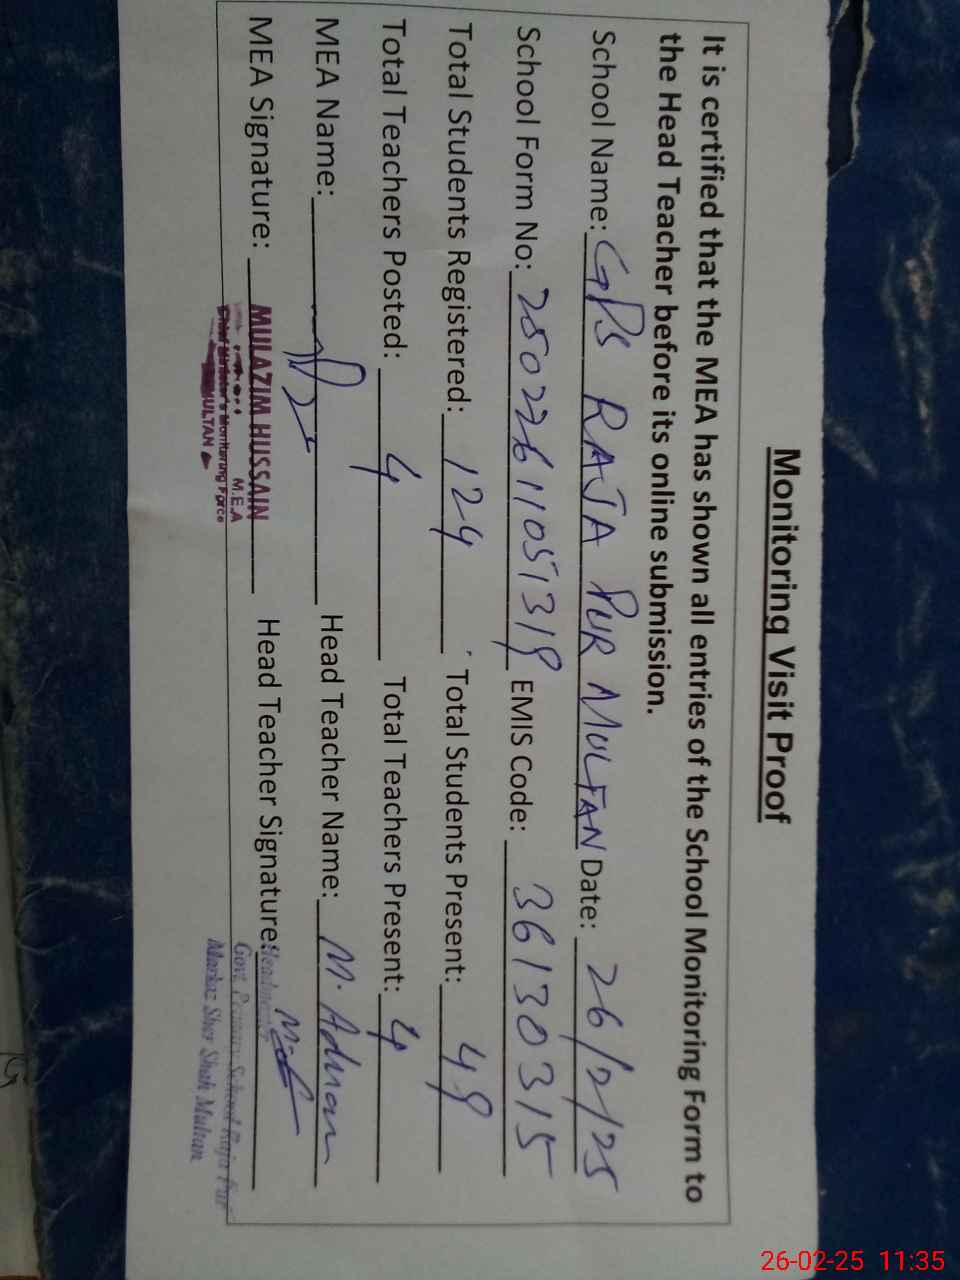 Monitoring Visit Proof
It is certified that the MEA has shown all entries of the School Monitoring Form to
the Head Teacher before its online submission.
School Name: GPS RAJA PUR MULTAN Date: 26/2/25
School Form No: EMIS Code: 36130315
Total Students Registered: 124 Total Students Present: 49
Total Teachers Posted: 4 Total Teachers Present: 4
MEA Name: Head Teacher Name: M. Adnan
MEA Signature: MULAZIM HUSSAIN Head Teacher Signature:
M.E.A
Chief Minister's Monitoring Force
MULTAN
Headmaster
Govt. Primary School Raja Pur
Markaz Sher Shah Multan
26-02-25 11:35